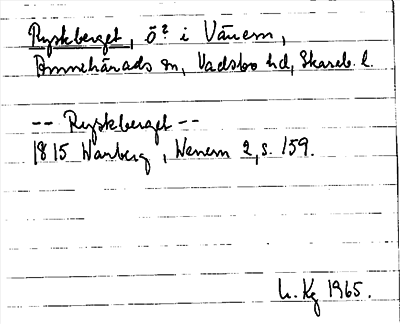 Ryskberget, ö? i Vänern,
Amnehärads sn, Vadsbo hd, Skarab. l.
-- Ryskberget --
1815 Warberg, Wenern 2, s. 159.
1965.